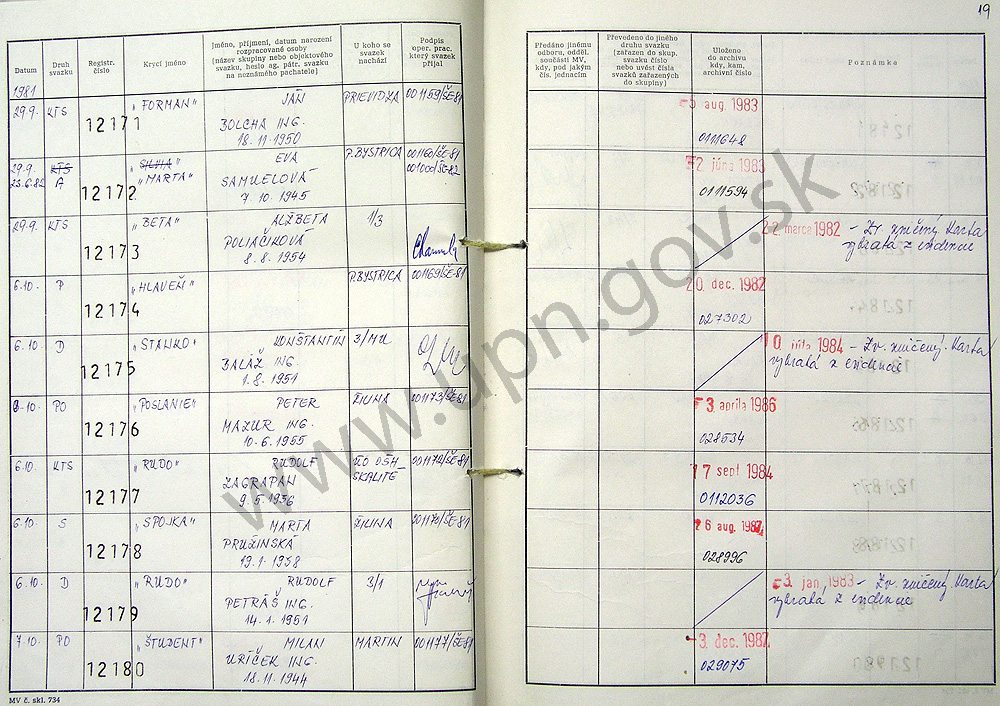 19
Datum
Druh svazku
Registr. číslo
Krycí jméno
Jméno, příjmení, datum narození rozpracované osoby (název skupiny nebo objektového svazku, heslo ag. pátr. svazku na neznámého pachatele)
U koho se svazek nachází
Podpis oper. prac. který svazek přijal
Předáno jinému odboru, odděl. součásti MV, kdy, pod jakým čís. jednacím
Převedeno do jiného druhu svazku (zařazen do skup. svazku číslo nebo uvést čísla svazků zařazených do skupiny)
Uloženo do archivu kdy, kam, archivní číslo
Poznámka
1981
29.9. KTS 12171 „FORMAN" JÁN PRIEVIDZA 001159/ŠE-81 aug. 1983
BOLCHA ING.
18.11.1950 0111648
29.9. KTS „SILVIA" EVA P.BYSTRICA 001160/ŠE-81 júna 1983
A 12172 „MARTA" SAMUELOVÁ
7.10.1945 0111594
29.9. KTS 12173 „BETA" ALŽBETA 1/3 22. marca 1982 – Zv. zničený Karta
POLIAČIKOVÁ vybratá z evidencie
8.8.1954
6.10. P 12174 „HLAVEŇ" P.BYSTRICA 001169/ŠE-81 20. dec. 1982
027302
6.10. D 12175 „STANKO" KONŠTANTÍN 3/MU 10. júla 1984 – Zv. zničený. Karta
BALÁŽ ING. vybratá z evidencie
1.8.1951
6.10. PO 12176 „POSLANIE" PETER ŽILINA 001173/ŠE-81 3. apríla 1986
MAZUR ING.
10.6.1955 028534
6.10. KTS 12177 „RUDO" RUDOLF ÚO OŠH SKALITÉ 001172/ŠE-81 17 sept. 1984
ZAGRAPAN
9.5.1936 0112036
6.10. S 12178 „SPOJKA" MARTA ŽILINA 001170/ŠE-81 26 aug.
PRUŽINSKÁ
19.1.1958 028996
6.10. D 12179 „RUDO" RUDOLF 3/1 3. jan. 1983 – Zv. zničený Karta
PETRÁŠ ING. vybratá z evidencie
14.1.1951
7.10. PO 12180 „ŠTUDENT" MILAN MARTIN 001177/ŠE-81 3. dec.
URÍČEK ING.
18.11.1944 029075
MV č. skl. 734
www.upn.gov.sk